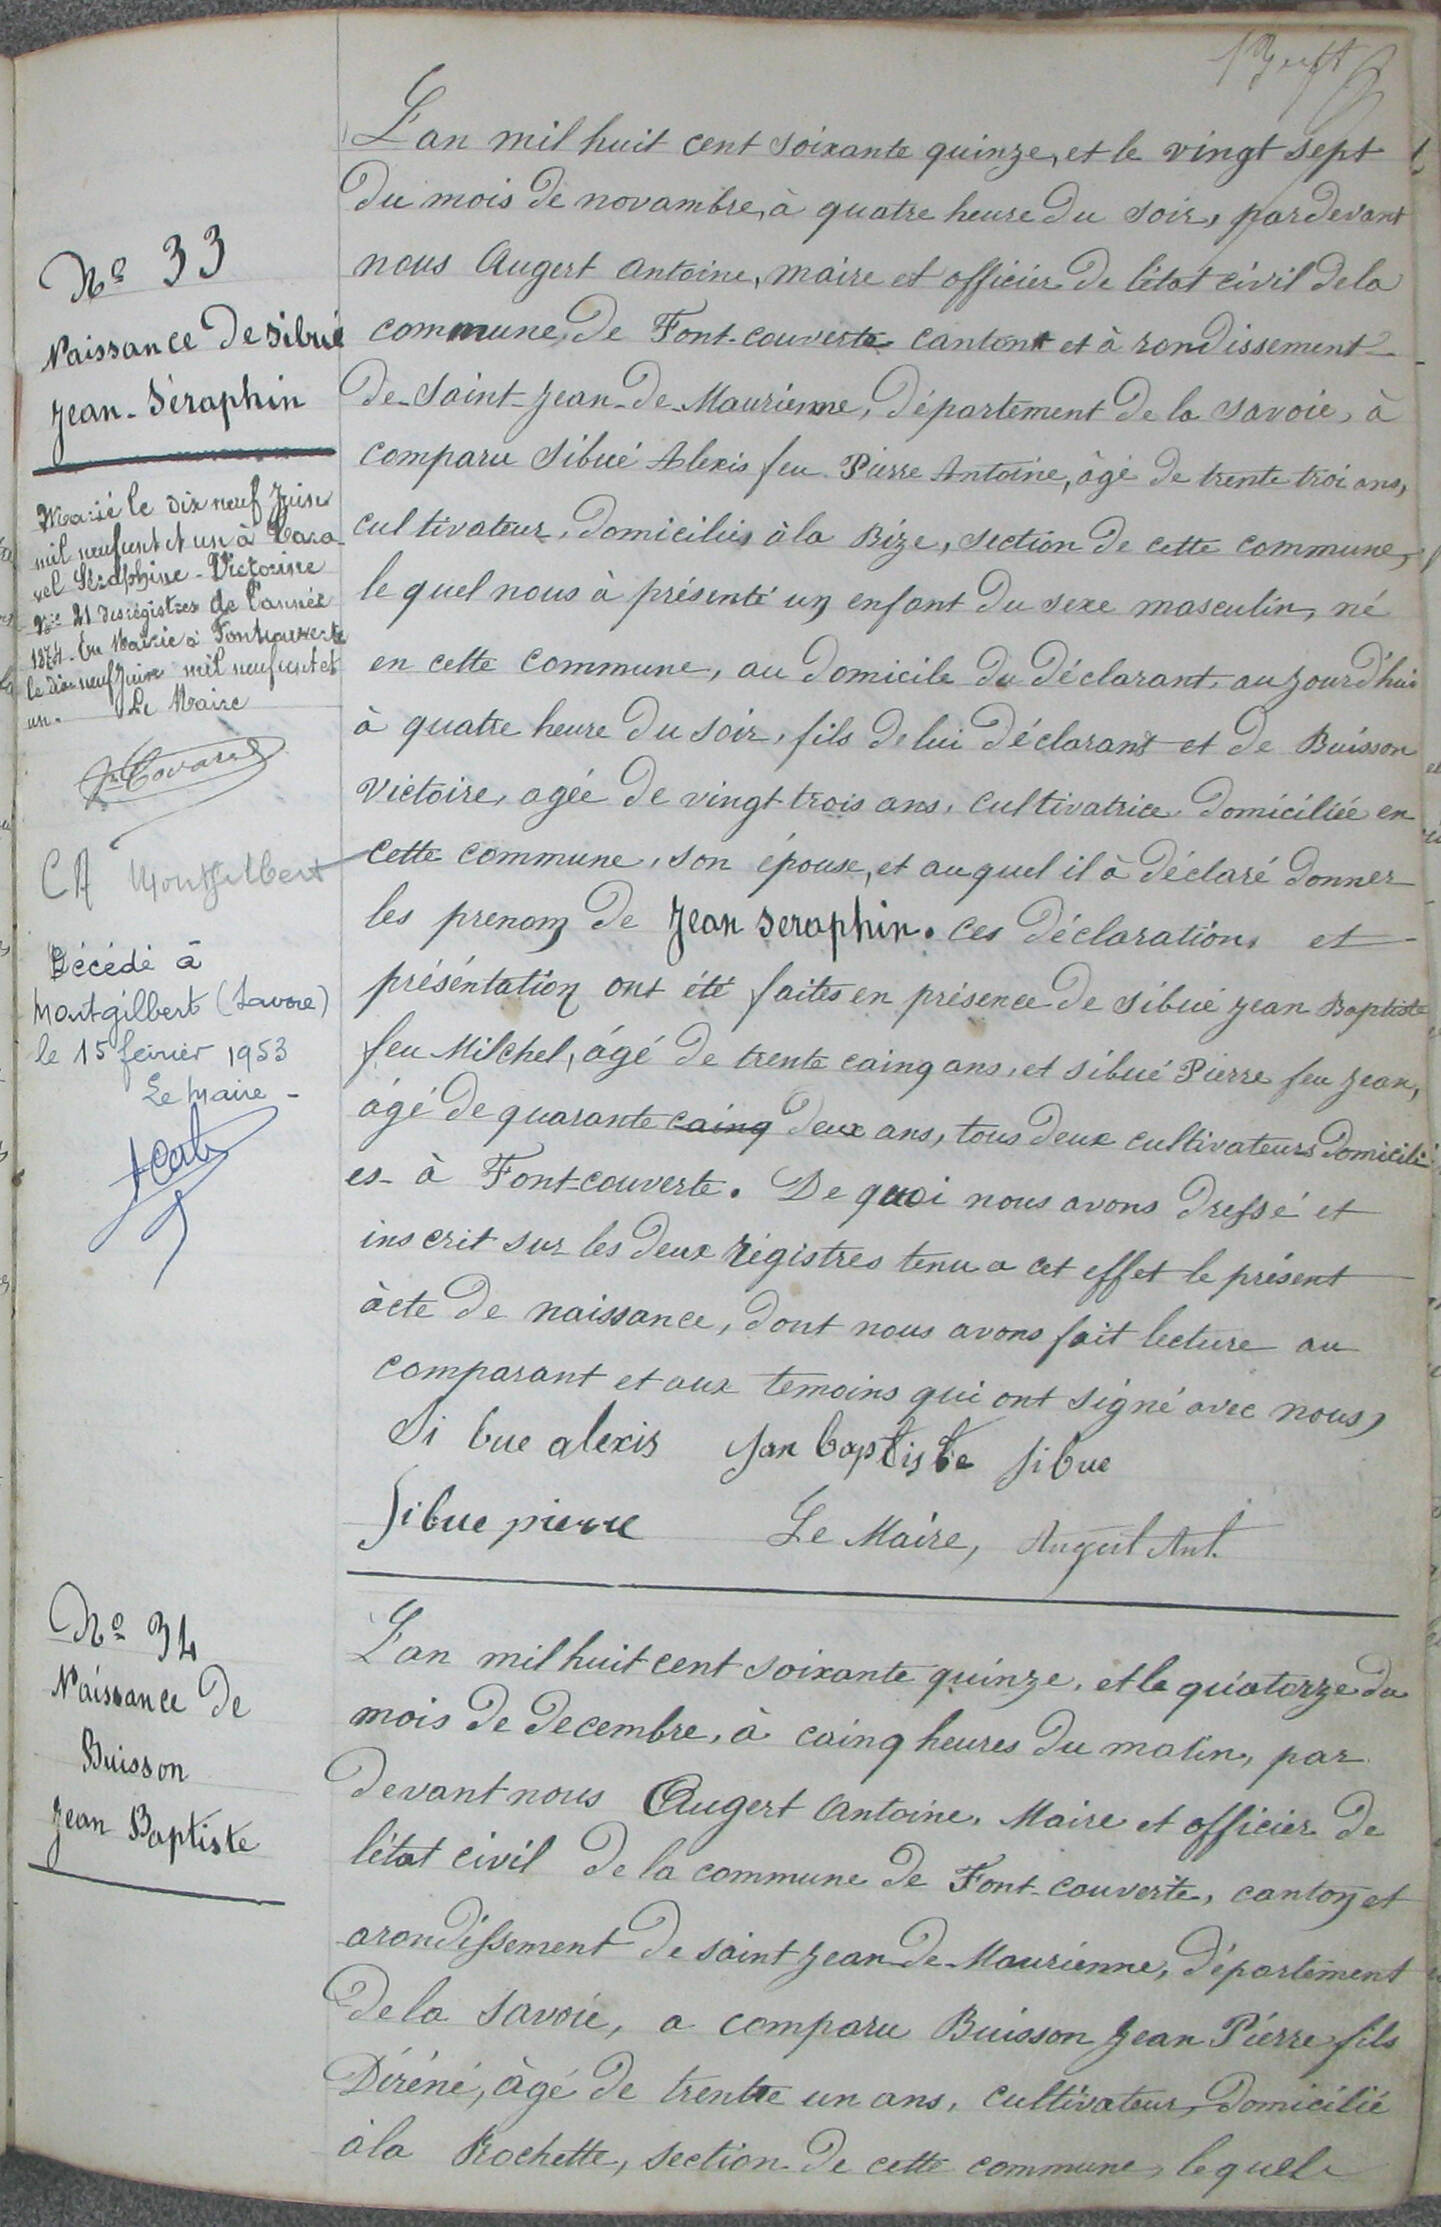 L'an mil huit cent soixante quinze, et le vingt sept
du mois de novambre, à quatre heure du soir, pardevant
nous Augert antoine, maire et officier de l'état civil dela
commune, de Font-couverte canton et à rondissement
de-saint-jean-de-Maurienne, département de la savoie, à
comparu sibué Alexis feu Pierre Antoine, âgé de trente troi ans,
cultivateur, domiciliés à la Bize, section de cette commune,
le quel nous à présenté un enfant du sexe masculin, né
en cette commune, au domicile du déclarant, au jourd'hui
à quatre heure du soir, fils de lui déclarant et de Buisson
victoire, agée de vingt trois ans, cultivatrice domiciliée en
cette commune, son épouse, et auquel il à déclaré donner
les prenom de Jean seraphin. ces déclarations et
présentation ont été faites en présence de sibué jean Baptiste
feu Milchel, âgé de trente cainq ans, et sibué Pierre feu jean,
âgé de quarante cainq deux ans, tous deux cultivateurs domicili
es- à Font-couverte. De quoi nous avons dressé et
inscrit sur les deux régistres tenu a cet effet le présent
àcte de naissance, dont nous avons fait lecture au
comparant et aux temoins qui ont signé avec nous,
Si bue alexis Jan baptiste sibue
Sibue pierre Le Maire, Augert Ant.
Nº 33
Naissance de sibué
Jean-Séraphin
Marié le dix neuf Juin
mil neuf cent et un à Cova
rel Séraphine-Victorine
Nº 21 des régistres de l'année
1874. En Mairie à Fontcouverte
le dix neuf Juin mil neuf cent et
un. Le Maire
CA Montgilbert
Décédé à
Montgilbert (Savoie)
le 15 février 1953
Le Maire -
Nº 34
Naissance de
Buisson
Jean Baptiste
L'an mil huit cent soixante quinze, et le quatorze du
mois de decembre, à cainq heures du matin, par
devant nous Augert Antoine, Maire et officier de
l'état civil de la commune de Font-couverte, canton et
arondissement de saint jean-de-Maurienne, département
de la savoie, a comparu Buisson Jean Pierre fils
Diréné, àgé de trentre un ans, cultivateur, domicilié
à la Rochette, section de cette commune, le quel